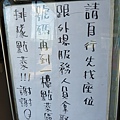 請自行先找座位
跟外場服務人員拿
號碼再到一樓點菜處
排隊點菜!!!謝謝